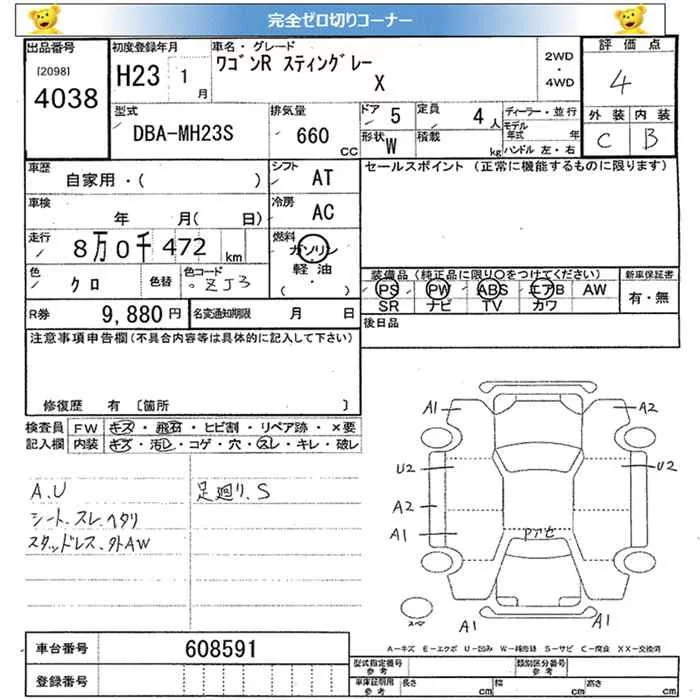 完全ゼロ切りコーナー
出品番号 初度登録年月 車名・グレード 評価点
[2098] 4038
H23 1月
ワゴンR スティングレー X
2WD・4WD
4
型式 排気量 ドア 定員 ディーラー・並行 外装 内装
DBA-MH23S 660 CC 5 4人 モデル年式 年 C B
形状 W 積載 kg ハンドル 左・右
車歴 シフト セールスポイント (正常に機能するものに限ります)
自家用・( ) AT
車検 冷房
年 月(日) AC
走行 燃料
8万0千472km ガソリン 軽油 (・)
色 色替 色コード
クロ ZJ3
装備品 (純正品に限り○をつけてください) 新車保証書
PS PW ABS エアB AW 有・無
SR ナビ TV カワ
R券 9,880円 名変通知期限 月 日 後日品
注意事項申告欄(不具合内容等は具体的に記入して下さい)
修復歴 有 〔箇所 〕
検査員 FW キズ・飛石・ヒビ割・リペア跡・×要
記入欄 内装 キズ・汚レ・コゲ・穴・スレ・キレ・破レ
A.U 足廻り.S
シート.スレ.ヘタリ
スタッドレス.外AW
A1 A2
U2 U2
A2
A1
Pアセ
スペ A1 A1
A-キズ E-エクボ U-凹み W-補修跡 S-サビ C-腐食 XX-交換済
車台番号 608591
登録番号
型式指定番号 参考 類別区分番号 参考
車庫証明用 参考 長さ cm 幅 cm 高さ cm